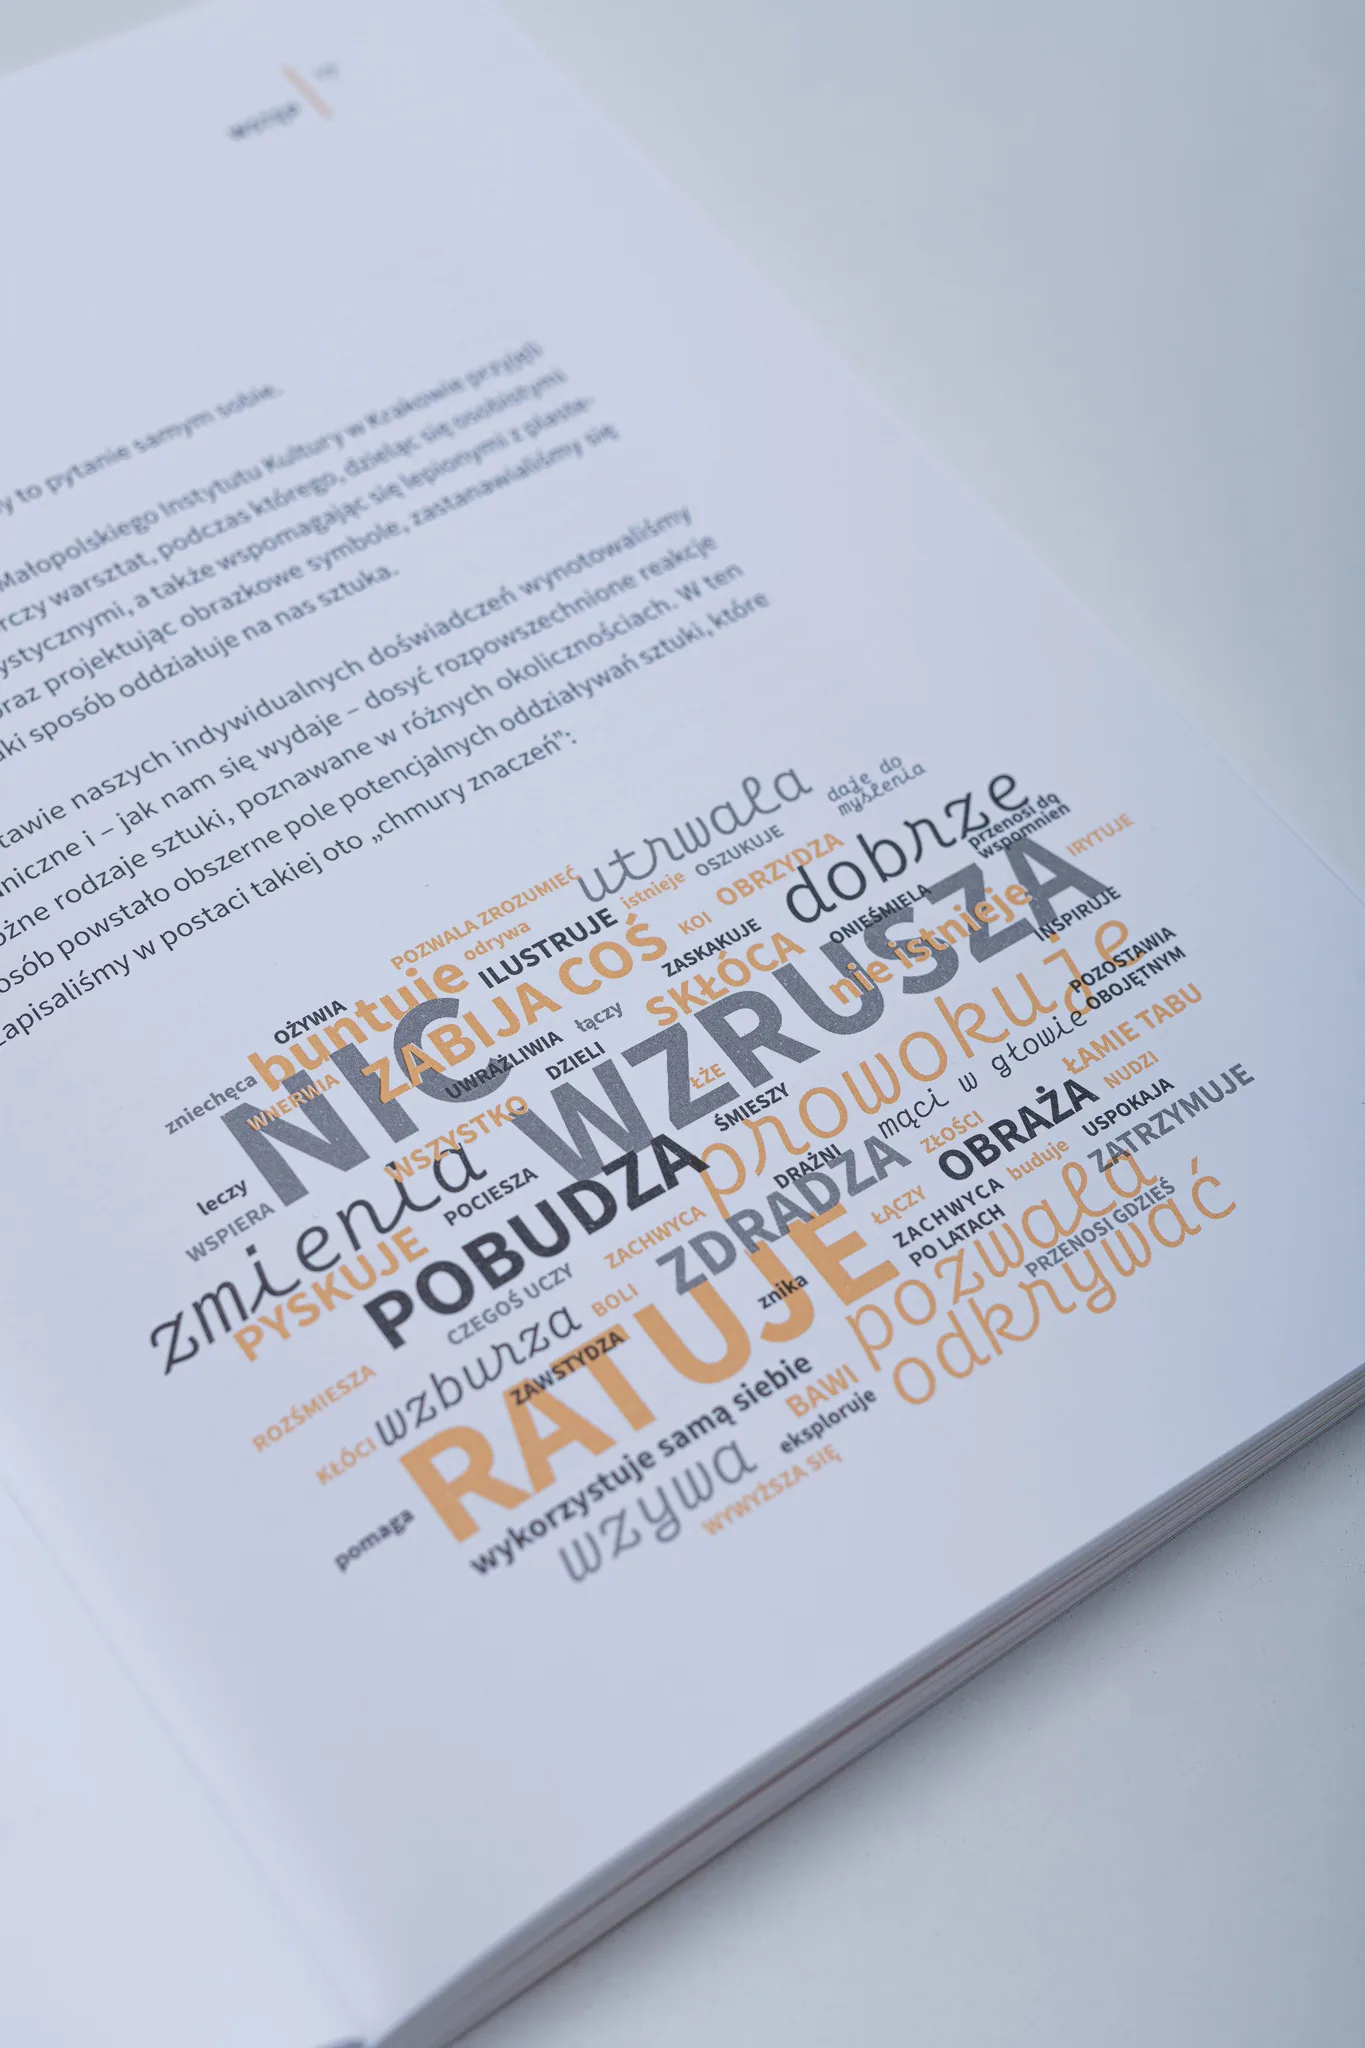 wizje
to pytanie samym sobie.
Małopolskiego Instytutu Kultury w Krakowie przyjęli
rczy warsztat, podczas którego, dzieląc się osobistymi
ystycznymi, a także wspomagając się lepionymi z plaste-
oraz projektując obrazkowe symbole, zastanawialiśmy się
aki sposób oddziałuje na nas sztuka.
tawie naszych indywidualnych doświadczeń wynotowaliśmy
niczne i – jak nam się wydaje – dosyć rozpowszechnione reakcje
óżne rodzaje sztuki, poznawane w różnych okolicznościach. W ten
osób powstało obszerne pole potencjalnych oddziaływań sztuki, które
zapisaliśmy w postaci takiej oto „chmury znaczeń”:
utrwala
daje do
myślenia
dobrze
przenosi do
wspomnień
IRYTUJE
POZWALA ZROZUMIEĆ
istnieje
OSZUKUJE
OBRZYDZA
odrywa
ILUSTRUJE
KOI
ONIEŚMIELA
nie istnieje
INSPIRUJE
OŻYWIA
buntuje
ZABIJA COŚ
ZASKAKUJE
SKŁÓCA
WZRUSZA
POZOSTAWIA
OBOJĘTNYM
zniechęca
WNERWIA
NIC
UWRAŻLIWIA
łączy
DZIELI
ŁŻE
prowokuje
mąci w głowie
ŁAMIE TABU
leczy
WSPIERA
WSZYSTKO
ŚMIESZY
NUDZI
zmienia
POCIESZA
POBUDZA
DRAŻNI
ZŁOŚCI
OBRAŻA
USPOKAJA
ZATRZYMUJE
PYSKUJE
CZEGOŚ UCZY
ZACHWYCA
ZDRADZA
ŁĄCZY
ZACHWYCA
PO LATACH
buduje
pozwala
PRZENOSI GDZIEŚ
odkrywać
ROZŚMIESZA
KŁÓCI
wzburza
BOLI
ZAWSTYDZA
RATUJE
znika
pomaga
wykorzystuje samą siebie
BAWI
eksploruje
wzywa
WYWYŻSZA SIĘ